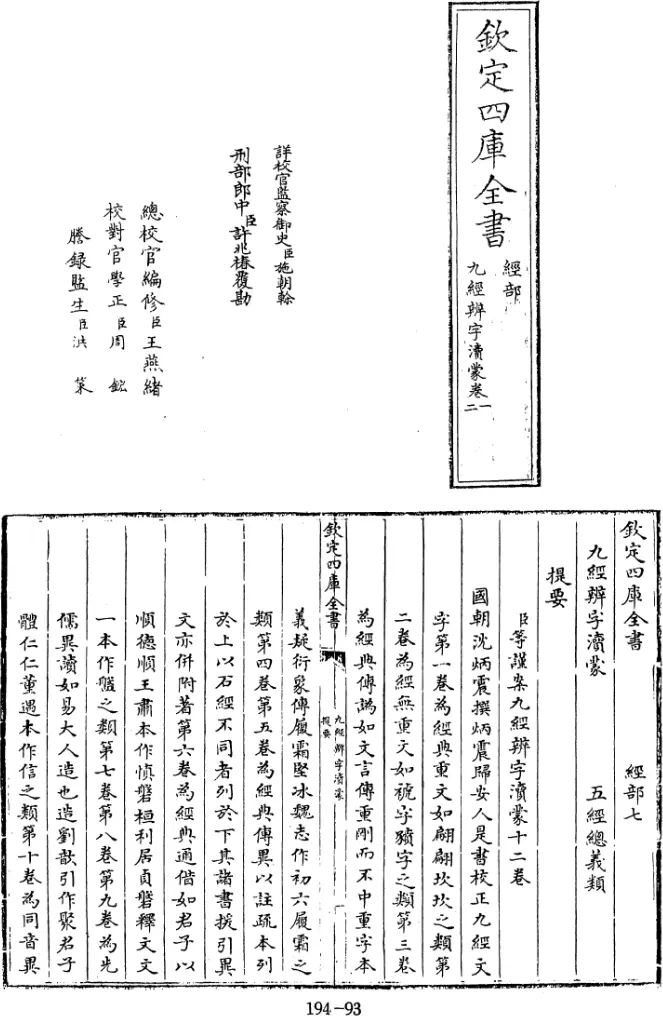 欽定四庫全書
經部
九經辨字瀆蒙卷一
二
詳校官監察御史臣施朝幹
刑部郎中臣許兆椿覆勘
總校官編修臣王燕緒
校對官學正臣周鋐
謄錄監生臣洪策
欽定四庫全書 經部七
九經辨字瀆蒙 五經總義類
提要
臣等謹案九經辨字瀆蒙十二卷
國朝沈炳震撰炳震歸安人是書校正九經文
字第一卷為經典重文如翩翩坎坎之類第
二卷為經無重文如號字豶字之類第三卷
為經典傳譌如文言傳重剛而不中重字本
欽定四庫全書
九經辨字瀆蒙
提要
一
義疑衍象傳履霜堅冰魏志作初六履霜之
類第四卷第五卷為經典傳異以註疏本列
於上以石經不同者列於下其諸書援引異
文亦併附著第六卷為經典通借如君子以
順德順王肅本作愼磐桓利居貞磐釋文文
一本作盤之類第七卷第八卷第九卷為先
儒異讀如易大人造也造劉歆引作聚君子
體仁仁董遇本作信之類第十卷為同音異
194-93